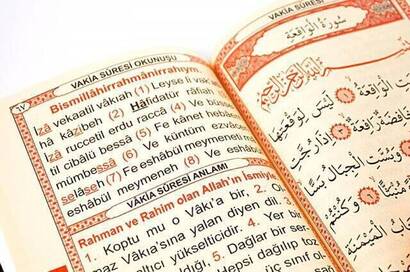 ٦٧
VAKİA SÛRESİ OKUNUŞU
Bismillâhirrahmânirrahıym.
İzâ vekaatil vâkıah (1) Leyse li vak
hâ kâzibeh (2) Hâfidatür râfiah
İzâ ruccetil erdu raccâ (4) Ve büsse
til cibâlü bessâ (5) Fe kânet hebâ
mümbessâ (6) Ve küntüm ezvâcen
selâseh (7) Fe eshâbül meymeneti
eshâbül meymeneh (8) Ve es
VAKİA SÛRESİ ANLAMI
Rahman ve Rahim olan Allah'ın ismiyle
1. Koptu mu o Vâkı'a bir, 2. O
maz Vâkıa'sına yalan diyen dil.
altıcı yükselticidir. 4. Yer bir
ldığı, 5. Dağlar bir ser
hepsi dağılıp toz
VAKİA SÛRESİ
سُورَةُ الْوَاقِعَةِ
بِسْمِ اللّٰهِ الرَّحْمٰنِ الرَّحِيمِ
الْوَاقِعَةُ لَيْسَ لِوَقْعَتِهَا
خَافِضَةٌ رَافِعَةٌ اِذَا رُجَّتِ
وَبُسَّتِ الْجِبَالُ بَسًّا
وَكُنْتُمْ
الْمَيْمَنَةِ